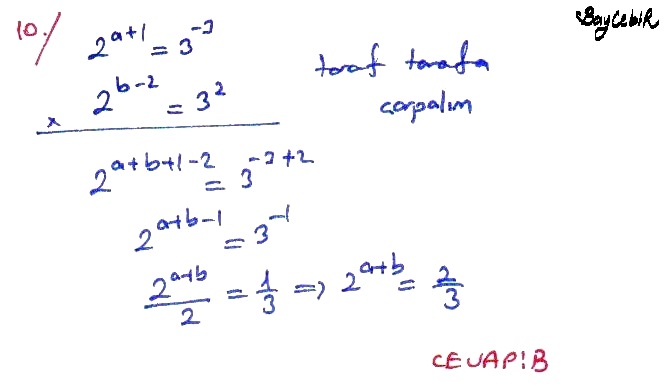 BayCebiR
10./ 2^{a+1} = 3^{-3}
taraf tarafa
x 2^{b-2} = 3^2
çarpalım
2^{a+b+1-2} = 3^{-3+2}
2^{a+b-1} = 3^{-1}
2^{a+b}/2 = 1/3 => 2^{a+b} = 2/3
CEVAP:B